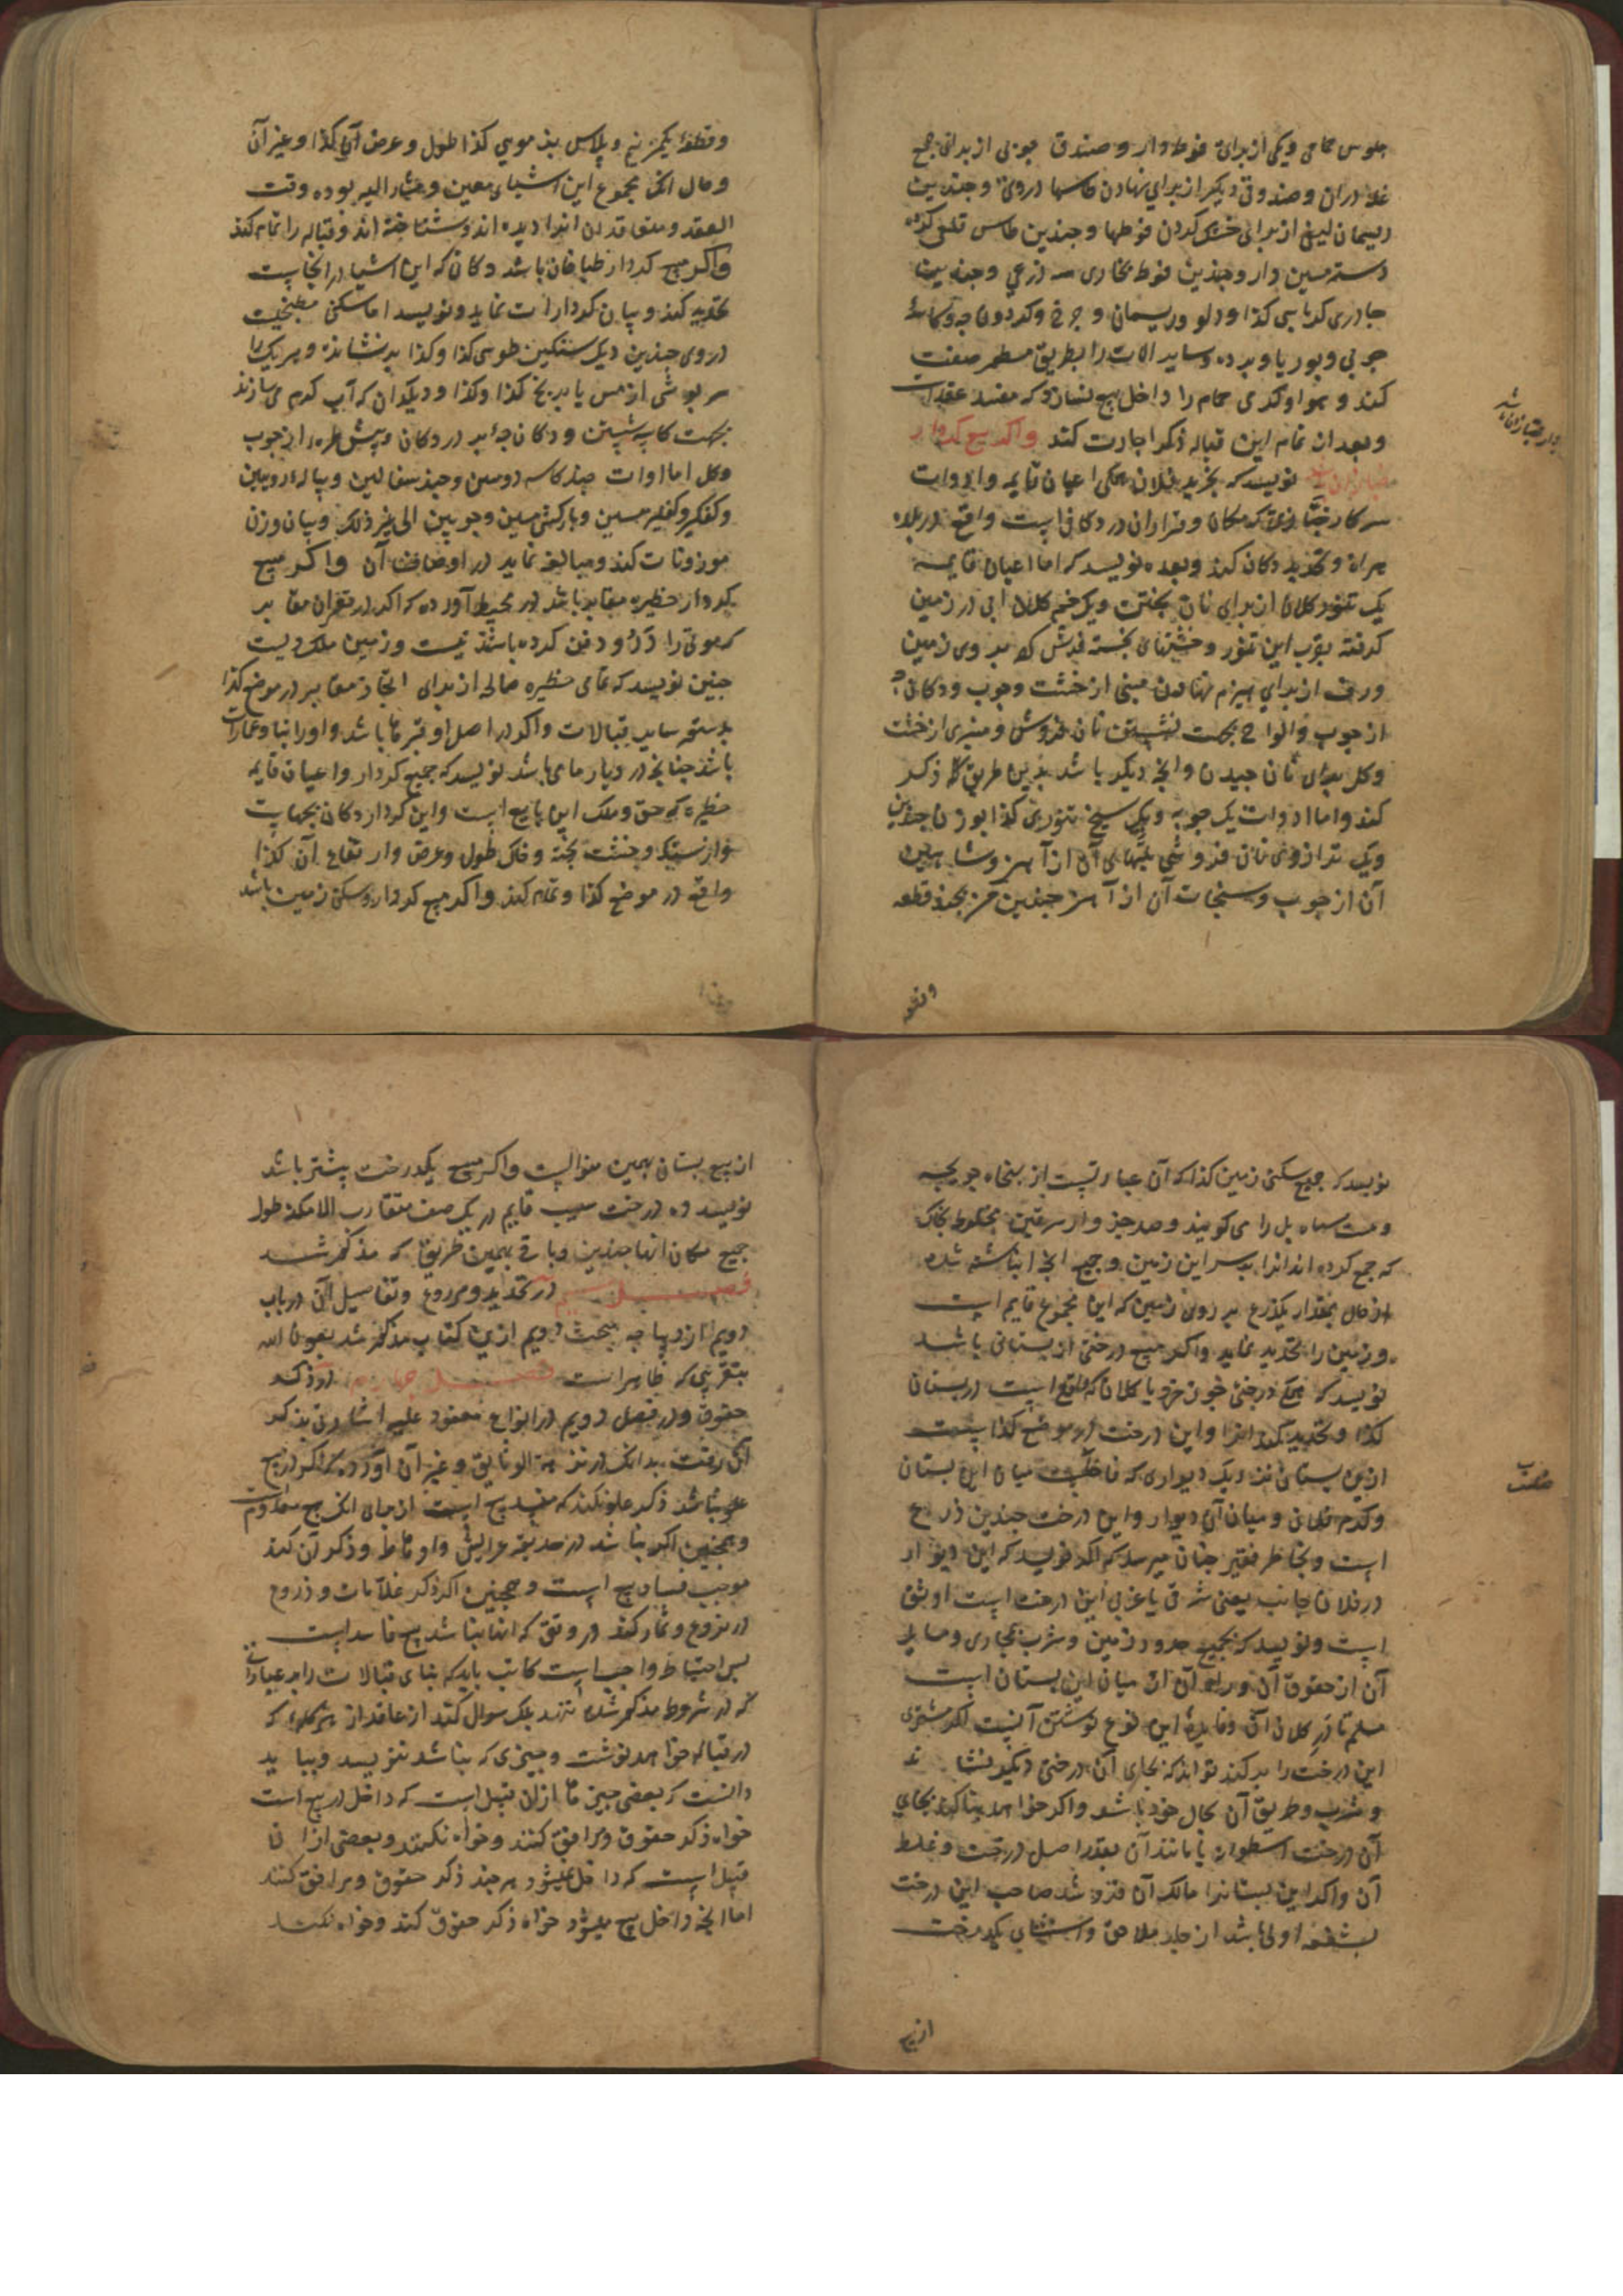 جلوس حمامی و یکی از برای فوطه دار و صندوق چوبی از برای جمع
غله دران و صندوقی دیگر از برای نهادن طاسها دروی و چندین
ریسمان لیفی از برای خشک کردن فوطها و چندین طاس
دسته مسین دار و چندین فوطه بخاری سه ذرعی و چندین
چادری کرباسی کذا و دلو و ریسمان و چرخ و کردون
چوبی و بوریا و پرده و سایر الات را بطریق مسطور صفت
کند و هوا و کرمی حمام را داخل بیع نسازد که مفسد عقدست
و بعد از تمام این قباله ذکر اجارت کند و اگر بیع کردار
نویسد که بخرید فلان همکی اعیان قایمه و ادوات
سرکار خبازی که مکان و قرار ان در دکانی است واقع در بلده
هراة و تحدید دکان کند و بعده نویسد که اما اعیان قایمه
یک تنور کلان از برای نان پختن و یک خم کلان آبی در زمین
گرفته بقرب این تنور و خشتهای پخته فرش که بر روی زمین
ورف از برای هیزم نهادن مبنی از خشت و چوب و دکانی
از چوب و الواح بجهت نشستن نان فروش و منبری از خشت
و کل برای نان چیدن و انچه دیگر باشد بدین طریق که ذکر
کند و اما ادوات یک چوبه و یک سیخ تنوری کذا بوزن چندین
و یک ترازوی نان فروشی پلهای آن از آهن و شاهین
آن از چوب و سنجات آن از آهن چندین من بچند قطعه
وقطعه
و قطعه یکمن نیم و پلاس بز مویی کذا طول و عرض آن کذا و غیر آن
و حال انکه مجموع این اشیاء معین و مشار الیه بوده وقت
العقد و متعاقدان انرا دیده اند و شناخته اند و قباله را تمام کند
و اگر بیع کردار طباخان باشد دکان که این اشیا در انجاست
تحدید کند و بیان کردار ات نماید و نویسد اما سکنی مطبخیت
دروی چندین دیک سنگین طوسی کذا و کذا برنشانده و هر یک را
سرپوشی از مس یا برنج کذا و کذا و دیکدان که آب کرم می سازند
بجهت کاسه شستن و دکانچه بر در دکان و پیش طره از چوب
وکل اما ادوات چند کاسه رومین و چند سفالین و پیاله رویین
و کفگیر و کفلیز مسین و بارکش مسین و چوبین الی غیر ذلک و بیان وزن
موزونات کند و مبالغه نماید در اوصاف آن و اگر بیع
کردار حظیره مقابر باشد در محیط آورده که اگر در مقبر ان مقابر
که موتی را درو دفن کرده باشند نیست و زمین ملک ویست
چنین نویسد که تمامی حظیره خالیه از برای اتخاذ مقابر در موضع کذا
بدستور سایر قبالات و اگر در اصل او قبرها باشد و اورا بنا و عمارت
باشد چنانچه در دیار ما می باشد نویسد که جمیع کردار و اعیان قایمه
حظیره که حق و ملک این بایع است و این کردار دکان بجهات
از سنگ و خشت پخته و خاک طول و عرض و ارتفاع آن کذا
واقع در موضع کذا و تمام کند و اگر بیع کردار و سکنی زمین باشد
نویسد که جمیع سکنی زمین کذا که آن عبارتست از پنجاه جریبه
که جمع کرده اند انرا بر سر این زمین و جمیع انچه انباشته شده
از خاک بمقدار یکذرع بر روی زمین که این مجموع قایم است
و زمین را تحدید نماید و اگر بیع درختی از بستانی باشد
نویسد که همکی درختی کلان که واقع است در بستان
کذا و تحدید کند انرا و این درخت در موضع کذا
ازین بستانی نزدیک دیواری که فاصل است میان این بستان
وکرم فلانی و میان آن دیوار و این درخت چندین ذراع
است و بخاطر فقیر چنان میرسد که اگر نویسد که این دیوار
در فلان جانب یعنی شرقی یا غربی این درخت است اوثق
است و نویسد که بجمیع حدود زمین و شرب مجاری و مسایل
آن از حقوق آن و براه آن از میان این بستان است
مسلم تا در کلان آن و فایده این نوع نوشتن آنست که اگر مشتری
این درخت را بر کند تواند که بجای آن درختی دیگر نشاند
و شرب و طریق آن بحال خود باشد و اگر خواهد بنا کند بجای
آن درخت اسطوانه یا مانند آن بقدر اصل درخت و غلظ
آن و اگر این بستانرا مالک آن فروشد صاحب این درخت
بشفعه اولی باشد از جار ملاصق و استثنای یکدرخت
ازبیع
از بیع بستان بهمین منوالست و اگر بیع یکدرخت بیشتر باشد
نویسد ده درخت سیب قایم در یک صف متقارب الامکنه طول
جمیع مکان انها چندین و باقی بهمین طریق که مذکور شد
فصل سیم در تحدید و ذروع و تفاصیل آن در باب
دویم از دیباجه مبحث دویم ازین کتاب مذکور شد بعون الله
بتقریبی که ظاهر است فصل چهارم در ذکر
حقوق و در فصل دویم در انواع معقود علیه اشارتی بذکر
آن رفت بدانکه در نزهة الوثایق و غیر آن آورده که اگر در بیع
علو باشد ذکر علو نکند که مفسد بیع است از برای انکه بیع معدوم
و همچنین اگر نباشد در حدیقه عرایش و اوهاط و ذکر آن کند
موجب فساد بیع است و همچنین اگر ذکر غلات و زروع
در مزروع و ثمار کند در وقتی که انها نباشد بیع فاسد است
پس احتیاط واجب است کاتب باید که بنای قبالات را بر عبارات
که در شروط مذکور شده ننهد بلکه سوال کند از عاقد از هر کلمه که
در قباله خواهد نوشت و چیزی که نباشد ننویسد و بباید
دانست که بعضی چیزها از ان قبیل است که داخل در بیع است
خواه ذکر حقوق و مرافق کنند و خواه نکنند و بعضی از ان
قبیل است که داخل نمیشود هر چند ذکر حقوق و مرافق کنند
اما انچه داخل بیع میشود خواه ذکر حقوق کند و خواه نکند